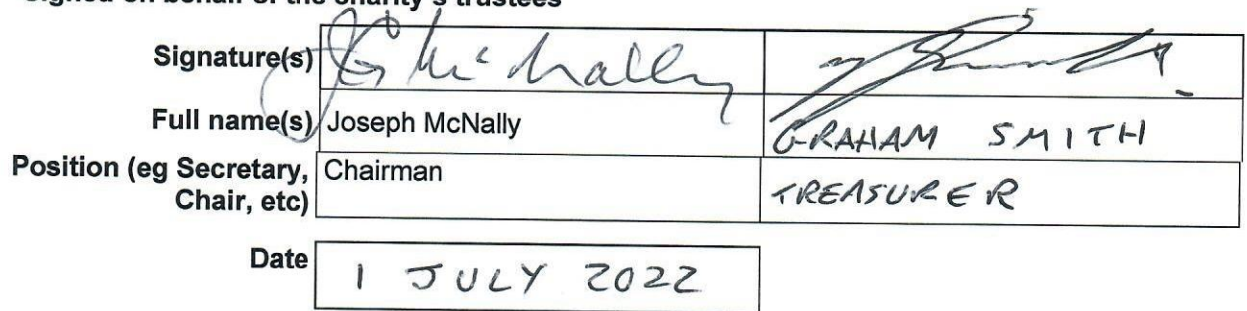 Signed on behalf of the charity's trustees
Signature(s) JG McNally
Full name(s) Joseph McNally GRAHAM SMITH
Position (eg Secretary, Chairman TREASURER
Chair, etc)
Date 1 JULY 2022